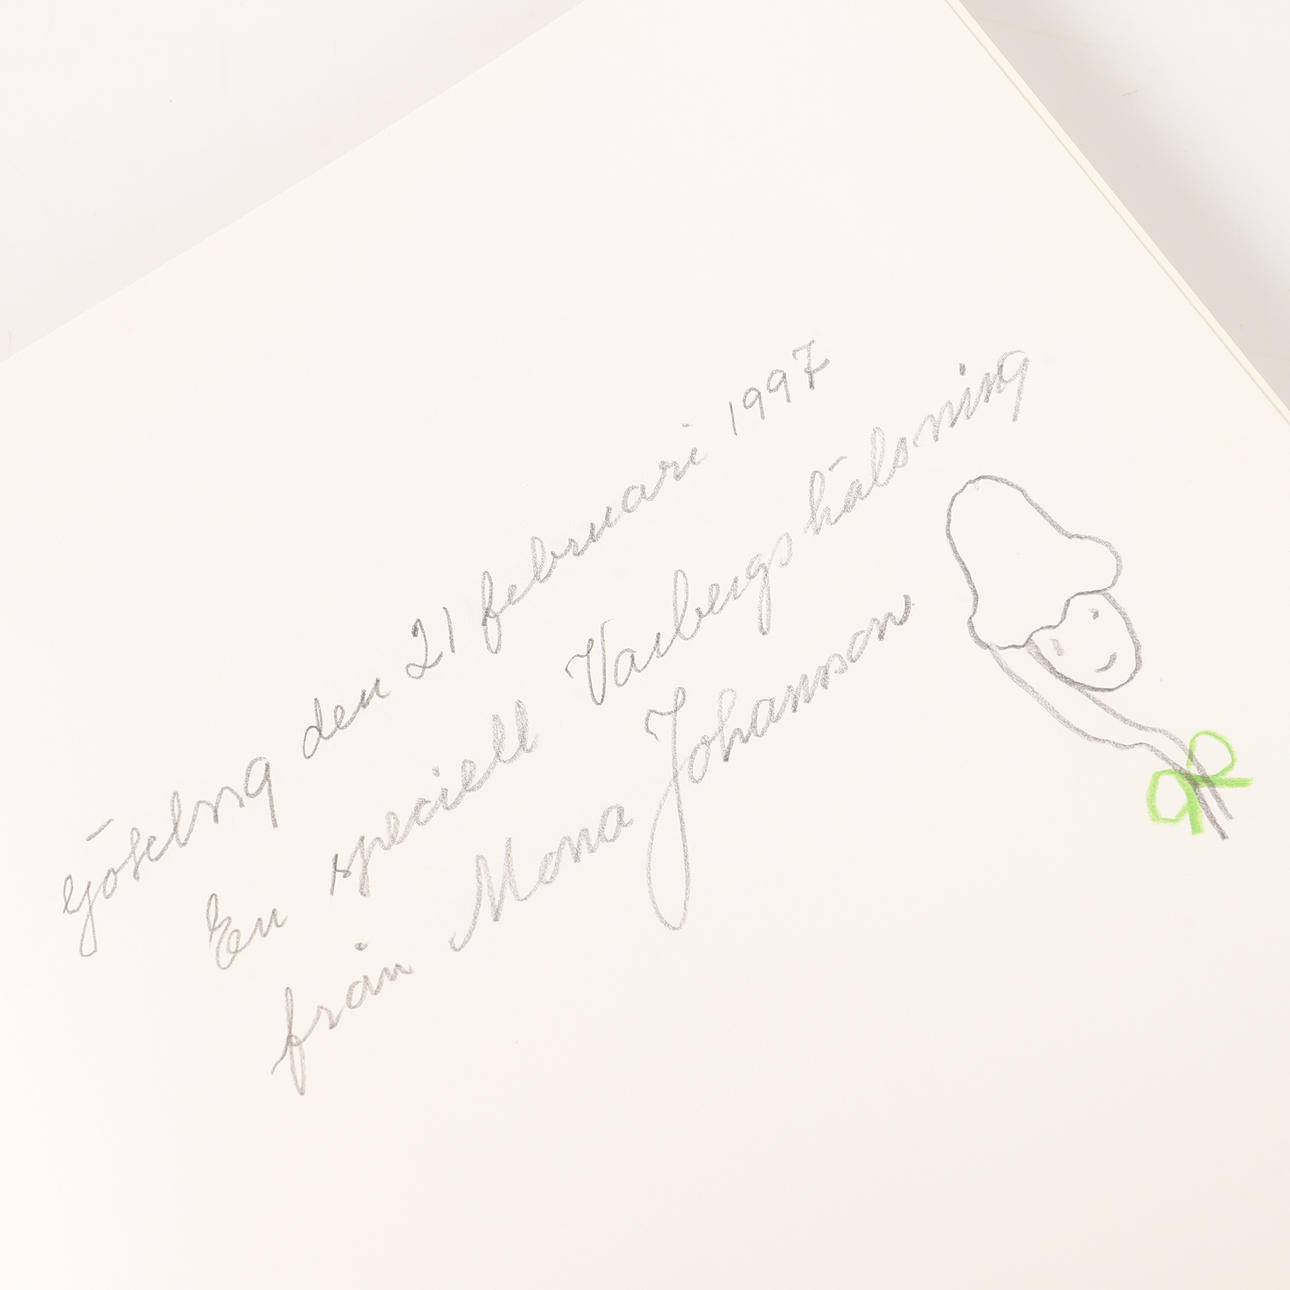 Göteborg den 21 februari 1997
En speciell Varbergshälsning
från Mona Johansson